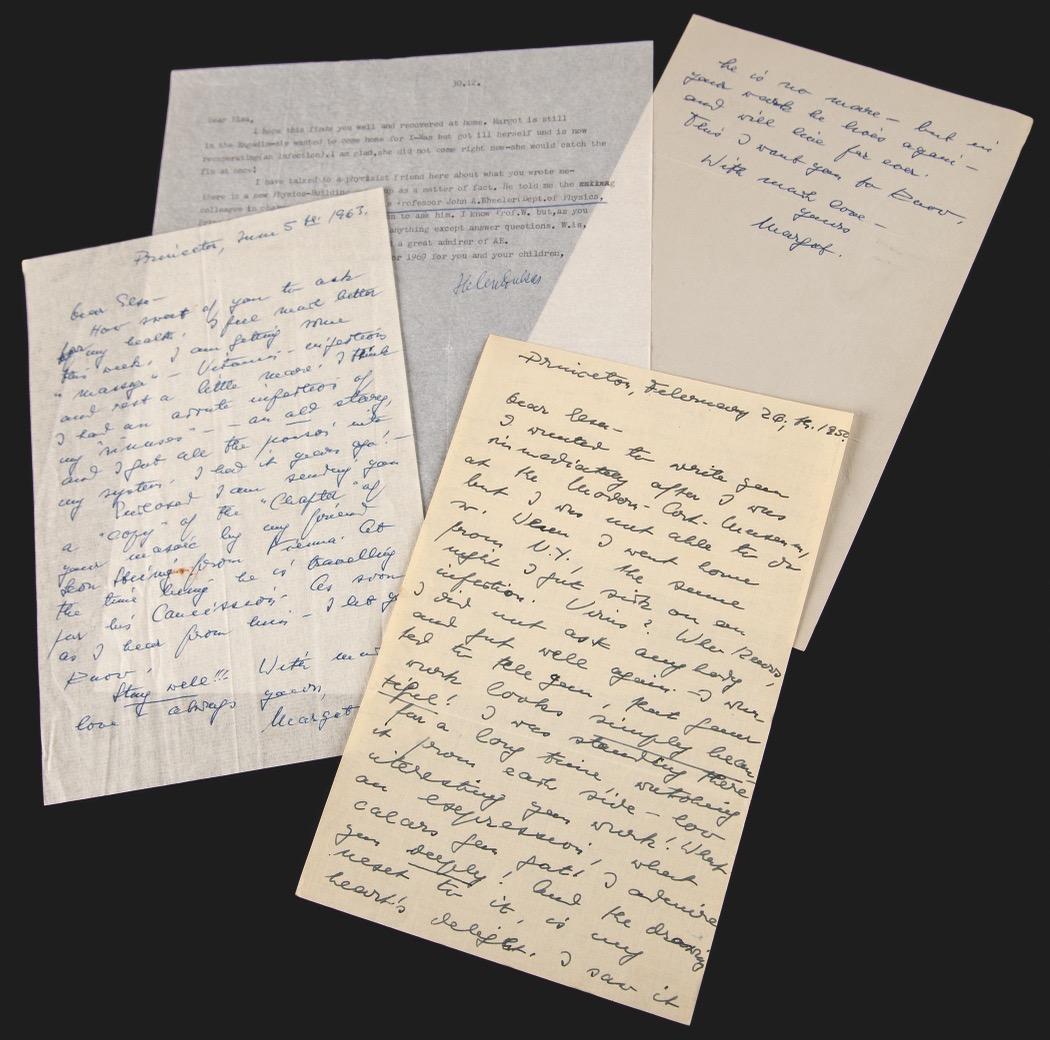 30.12.
Dear Elsa,
I hope this finds you well and recovered at home. Margot is still
in the Engadin-sie wanted to come home for X-Mas but got ill herself und is now
recuperating(an infection).I am glad,she did not come right now-she would catch the
flu at once!
I have talked to a physicist friend here about what you wrote me-
there is a new Physics-Building up as a matter of fact. He told me the
colleague in Professor John A.Wheeler;Dept.of Physics,
on to ask him. I know Prof.W. but,as you
anything except answer questions. W.is,
a great admirer of AE.
or 1969 for you and your children,
Helen Dukas
he is no more — but in
your work he lives again —
and will live for ever!
This I want you to know,
With much love —
yours
Margot.
Princeton, June 5 th. 1963.
Dear Elsa —
How sweet of you to ask
for my health! I feel much better
this week, I am getting some
"massage" — Vitamin — injections
and rest a little more. I think
I had an acute infection of
my "sinuses" — an old story,
and I got all the poison into
my system. I had it years ago! —
Enclosed I am sending you
a "copy" of the "Chapter" of
your mosaic by my friend
from Vienna. At
the time being he is travelling
for his As soon
as I hear from him — I let you
know!
Stay well!!! With much
love always yours,
Margot
Princeton, February 26, th. 1950
Dear Elsa —
I wanted to write you
immediately after I was
at the Modern-Art-Museum,
but I was not able to do
so. When I went home
from N.Y., the same
night I got sick on an
infection. Virus? Who knows,
I did not ask anybody
and got well again. — I wan-
ted to tell you, that your
work looks simply beau-
tiful! I was standing there
for a long time, watching
it from each side — how
interesting you work! What
an expression, what
colors you got! I admire
you deeply! And the drawing
next to it, is my
heart's delight. I saw it